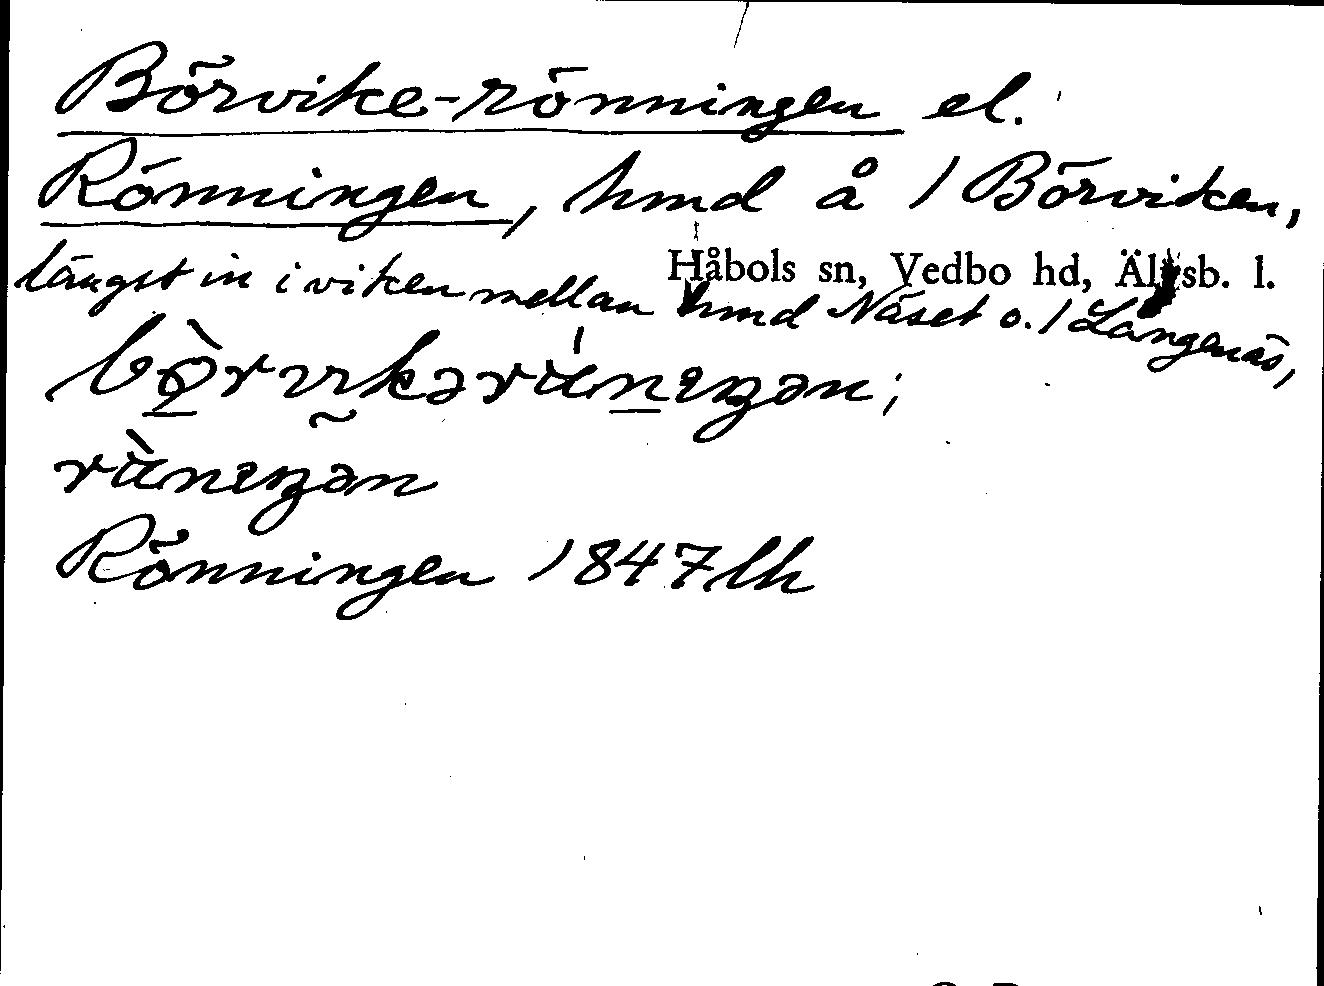 Börvike-rönningen el.
Rönningen, hmd å 1 Börviken,
Håbols sn, Vedbo hd, Älvsb. l.
längst in i viken mellan hmd Näset o. 1 Långenäs,
rönningen
Rönningen 1847 lh